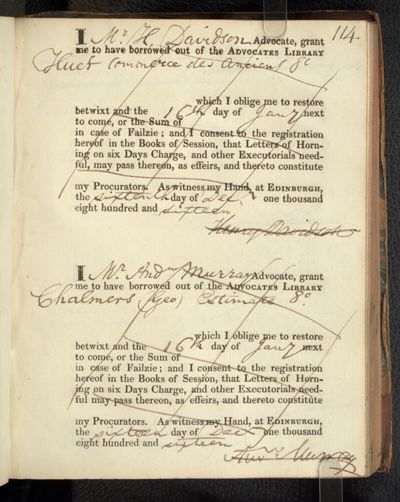 114.
I Mr. H. Davidson Advocate, grant
me to have borrowed out of the ADVOCATES LIBRARY
Huet Commerce des Anciens 8o
which I oblige me to restore
betwixt and the 16th day of Jany next
to come, or the Sum of
in case of Failzie; and I consent to the registration
hereof in the Books of Session, that Letters of Horn-
ing on six Days Charge, and other Executorials need-
ful, may pass thereon, as effeirs, and thereto constitute
my Procurators. As witness my Hand, at EDINBURGH,
the sixteenth day of Decr one thousand
eight hundred and sixteen.
Henry Davidson
I Mr. Andw Murray Advocate, grant
me to have borrowed out of the ADVOCATES LIBRARY
Chalmers (Geo) Estimate 8o
which I oblige me to restore
betwixt and the 16th day of Jany next
to come, or the Sum of
in case of Failzie; and I consent to the registration
hereof in the Books of Session, that Letters of Horn-
ing on six Days Charge, and other Executorials need-
ful may pass thereon, as effeirs, and thereto constitute
my Procurators. As witness my Hand, at EDINBURGH,
the sixteen day of Decr one thousand
eight hundred and sixteen
Andw Murray